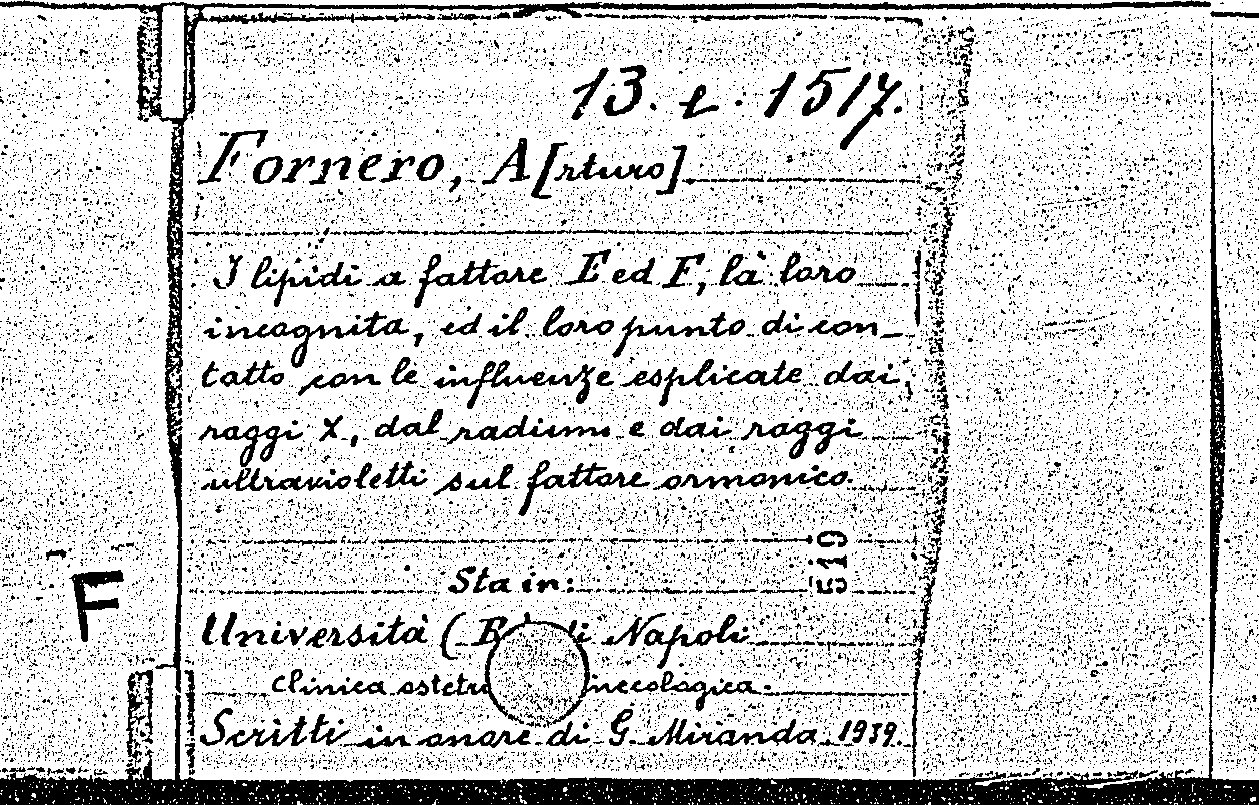 13. L. 1517.
Fornero, A[rturo]
I lipidi a fattore E ed F, là loro
incognita, ed il loro punto di con_
tatto con le influenze esplicate dai,
raggi X, dal radium e dai raggi
ultravioletti sul fattore ormonico.
519
Sta in:
F
Università ( di Napoli
Clinica
Scritti in onore di G. Miranda 1939.